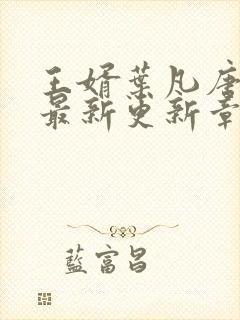 王婿葉凡唐
最新更新章
藍富昌